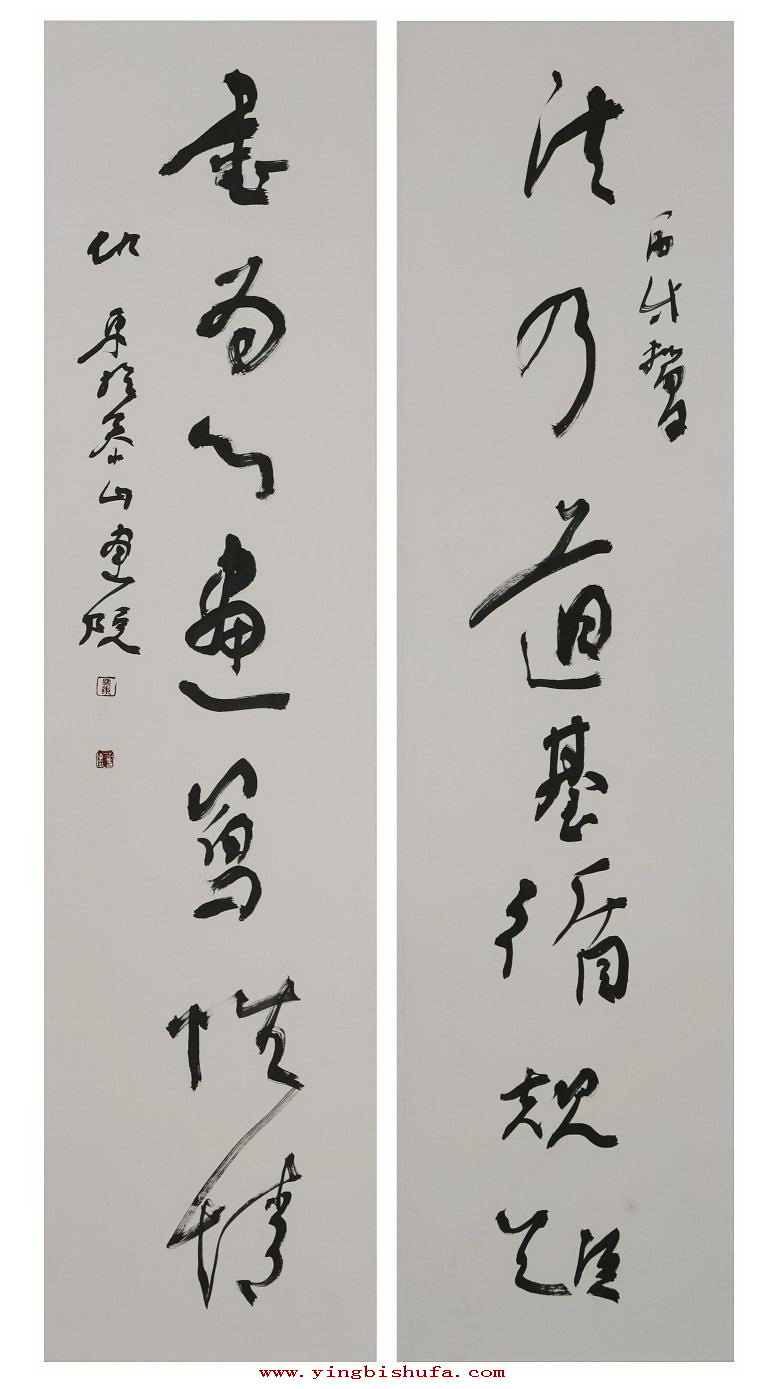 法乃道基循規矩
丙戌
書為心畫寫性情
東於泰山畫院
www.yingbishufa.com